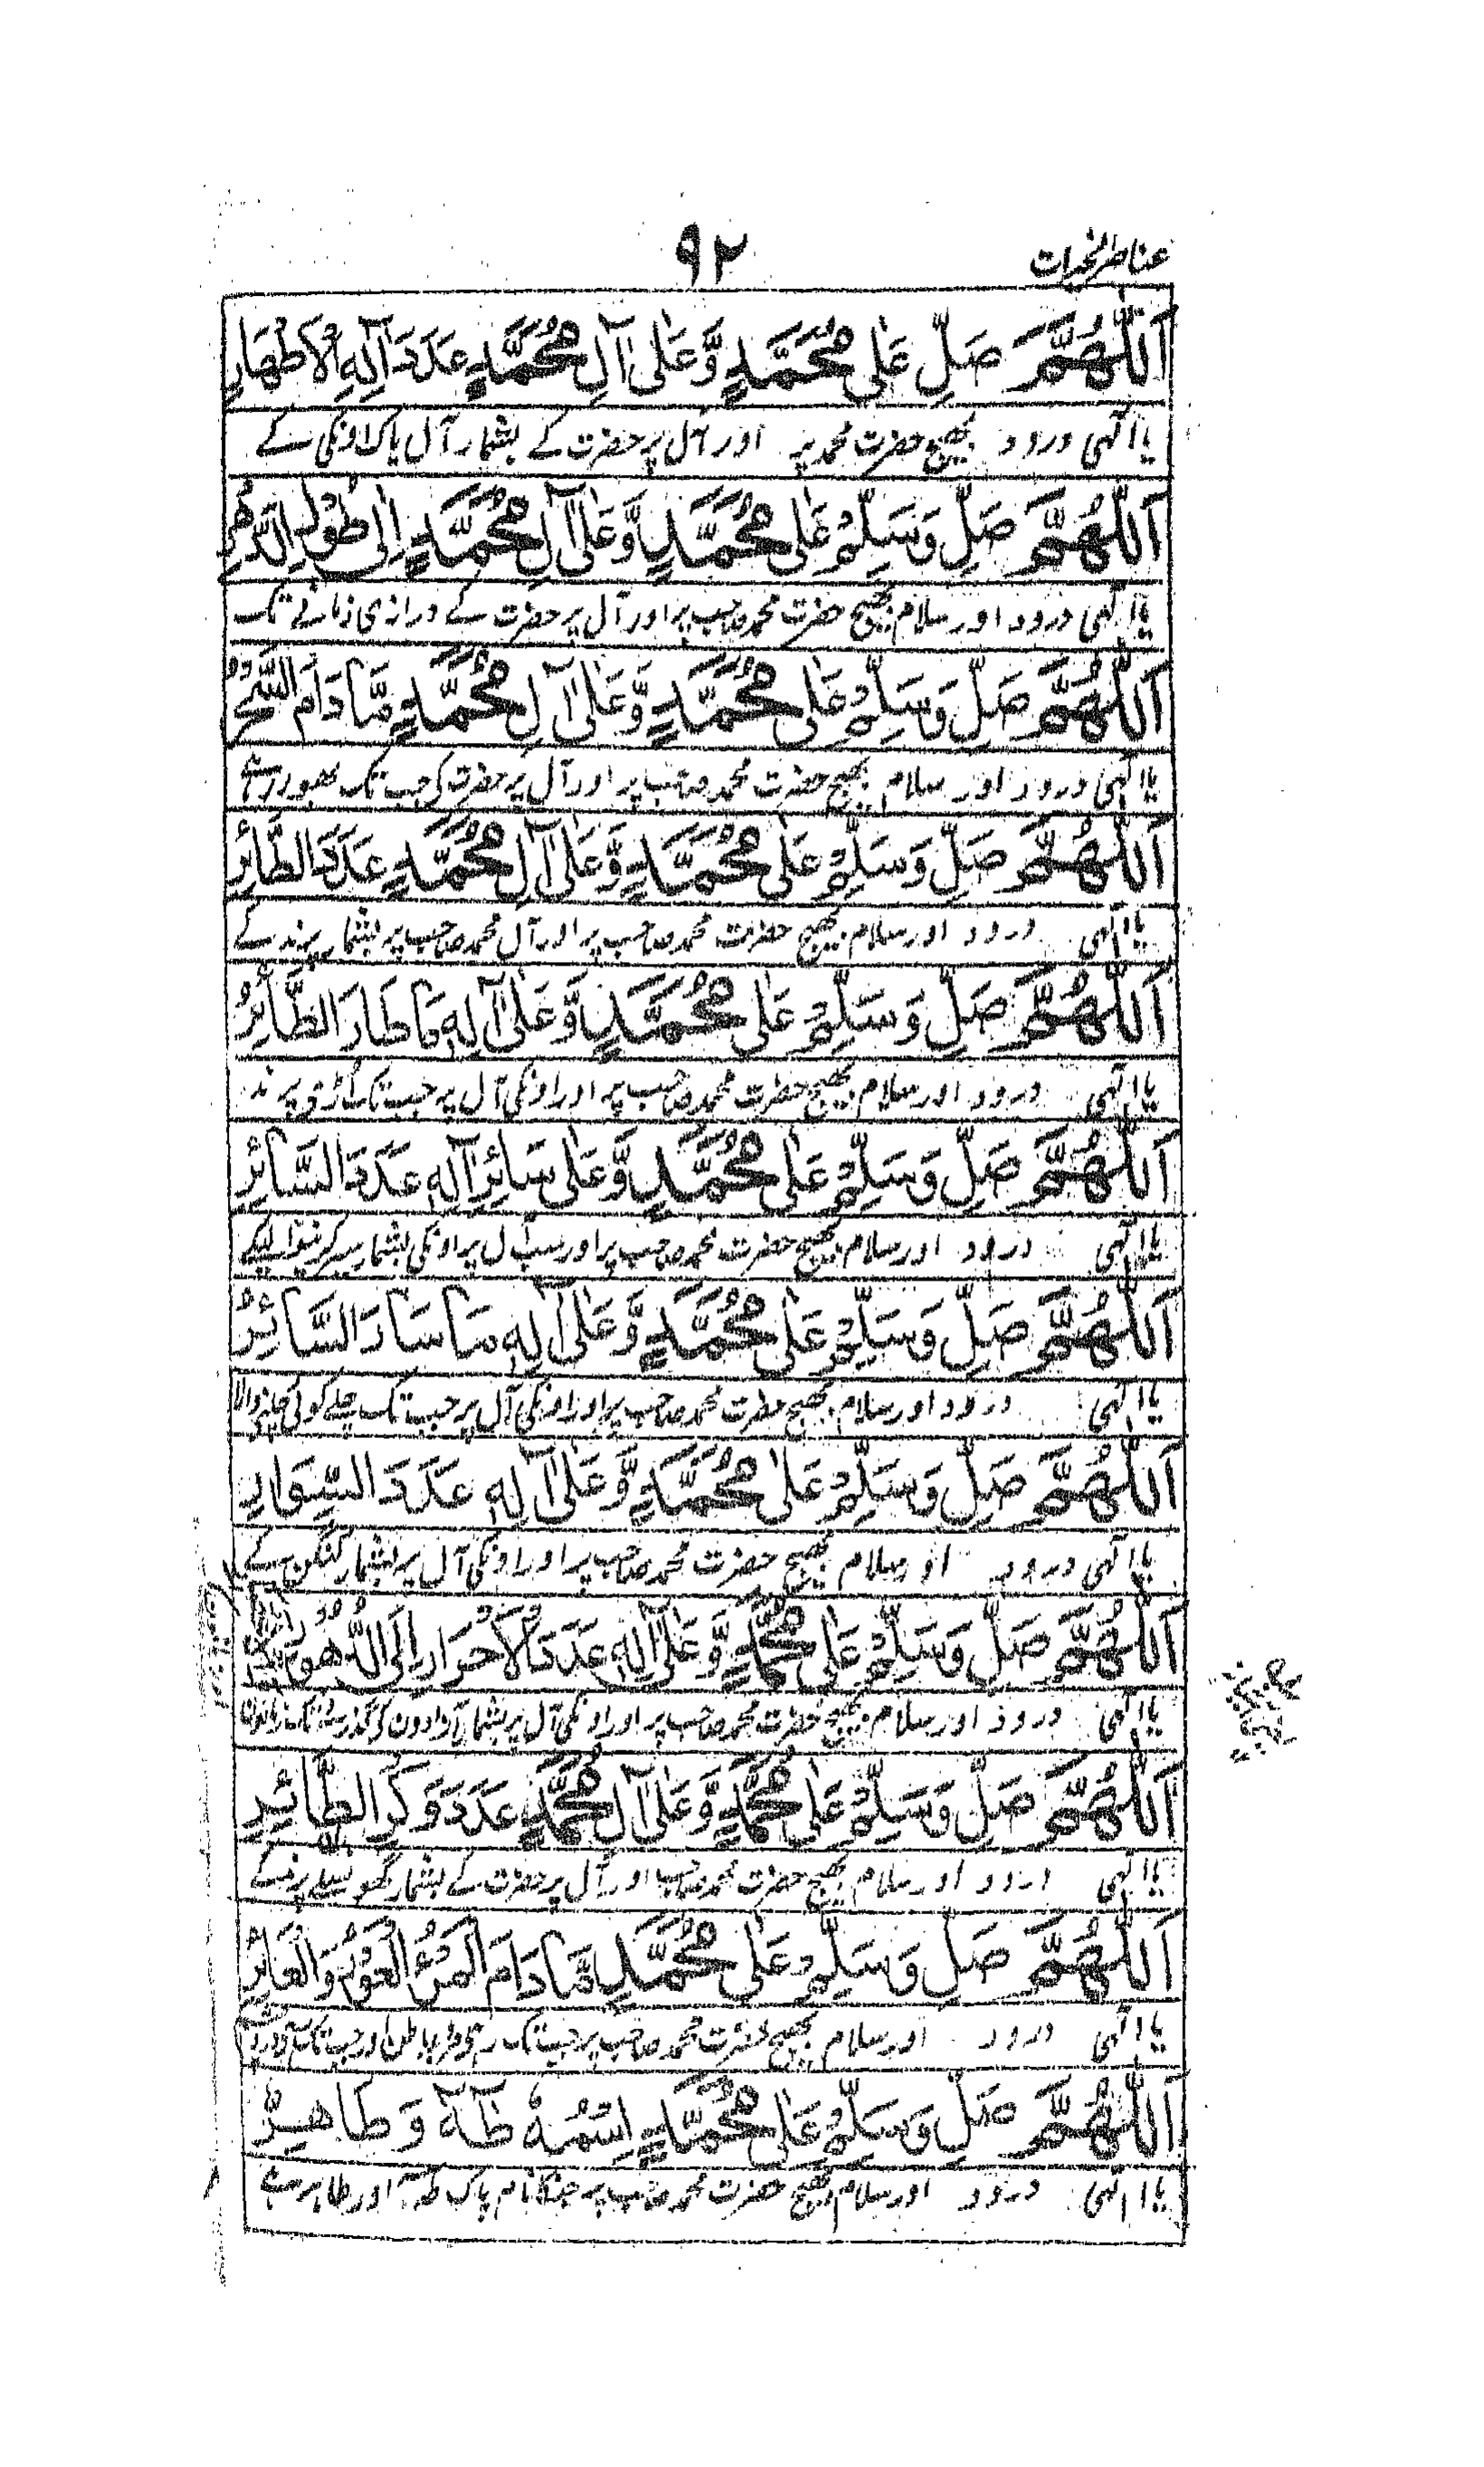 عناصر الخیرات
۹۲
اَللّٰهُمَّ صَلِّ عَلٰی مُحَمَّدٍ وَّعَلٰی اٰلِ مُحَمَّدٍ عَدَدَ اٰلِهِ الْاَطْهَارِ
یا الٰہی درود بھیج حضرت محمد پر اور آل پر حضرت کے بشمار آل پاک اونکی کے
اَللّٰهُمَّ صَلِّ وَسَلِّمْ عَلٰی مُحَمَّدٍ وَّعَلٰی اٰلِ مُحَمَّدٍ اِلٰی طُوْلِ الدَّهْرِ
یا الٰہی درود اور سلام بھیج حضرت محمد صاحب پر اور آل پر حضرت کے درازی زمانے تک
اَللّٰهُمَّ صَلِّ وَسَلِّمْ عَلٰی مُحَمَّدٍ وَّعَلٰی اٰلِ مُحَمَّدٍ مَّا دَامَ السَّحَرُ
یا الٰہی درود اور سلام بھیج حضرت محمد صاحب پر اور آل پر حضرت کی جب تک بھور رہے
اَللّٰهُمَّ صَلِّ وَسَلِّمْ عَلٰی مُحَمَّدٍ وَّعَلٰی اٰلِ مُحَمَّدٍ عَدَدَ الطَّائِرِ
یا الٰہی درود اور سلام بھیج حضرت محمد صاحب پر اور آل محمد صاحب پر بشمار پرند کے
اَللّٰهُمَّ صَلِّ وَسَلِّمْ عَلٰی مُحَمَّدٍ وَّعَلٰی اٰلِهٖ مَا طَارَ الطَّائِرُ
یا الٰہی درود اور سلام بھیج حضرت محمد صاحب پر اور اونکی آل پر جب تک اڑے پرند
اَللّٰهُمَّ صَلِّ وَسَلِّمْ عَلٰی مُحَمَّدٍ وَّعَلٰی سَائِرِ اٰلِهٖ عَدَدَ السَّائِرِ
یا الٰہی درود اور سلام بھیج حضرت محمد صاحب پر اور سب آل پر اونکی بشمار سیر کرنیوالیکے
اَللّٰهُمَّ صَلِّ وَسَلِّمْ عَلٰی مُحَمَّدٍ وَّعَلٰی اٰلِهٖ مَا سَارَ السَّائِرُ
یا الٰہی درود اور سلام بھیج حضرت محمد صاحب پر اور اونکی آل پر جب تک چلے کوئی چلنے والا
اَللّٰهُمَّ صَلِّ وَسَلِّمْ عَلٰی مُحَمَّدٍ وَّعَلٰی اٰلِهٖ عَدَدَ السِّوَارِ
یا الٰہی درود اور سلام بھیج حضرت محمد صاحب پر اور اونکی آل پر بشمار کنگن کے
اَللّٰهُمَّ صَلِّ وَسَلِّمْ عَلٰی مُحَمَّدٍ وَّعَلٰی اٰلِهٖ عَدَدَ الْاَحْرَارِ اِلَی الدُّهُوْرِ
یا الٰہی درود اور سلام بھیج حضرت محمد صاحب پر اور اونکی آل پر بشمار آزادون کو
اَللّٰهُمَّ صَلِّ وَسَلِّمْ عَلٰی مُحَمَّدٍ وَّعَلٰی اٰلِ مُحَمَّدٍ عَدَدَ وَكْرِ الطَّائِرِ
یا الٰہی درود اور سلام بھیج حضرت محمد صاحب اور آل پر حضرت کے بشمار گھونسلے پرند کے
اَللّٰهُمَّ صَلِّ وَسَلِّمْ عَلٰی مُحَمَّدٍ مَّا دَامَ
یا الٰہی درود اور سلام بھیج حضرت محمد صاحب پر جب تک
اَللّٰهُمَّ صَلِّ وَسَلِّمْ عَلٰی مُحَمَّدٍ اِسْمُهٗ طٰهٰ وَ طَاهِرٌ
یا الٰہی درود اور سلام بھیج حضرت محمد صاحب پر جنکا نام پاک طٰہٰ اور طاہر ہے